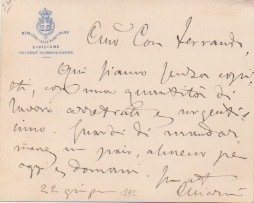 MINISTERO DELL'ISTRUZIONE
DIVISIONE
Caro Cav. Ferrando,
Qui siamo senza copi
sti, con una quantità di
lavoro arretrato e urgentis
simo. Guardi di mandar
mene un paio, almeno per
oggi e domani.
22 giugno 1892
Chiarini